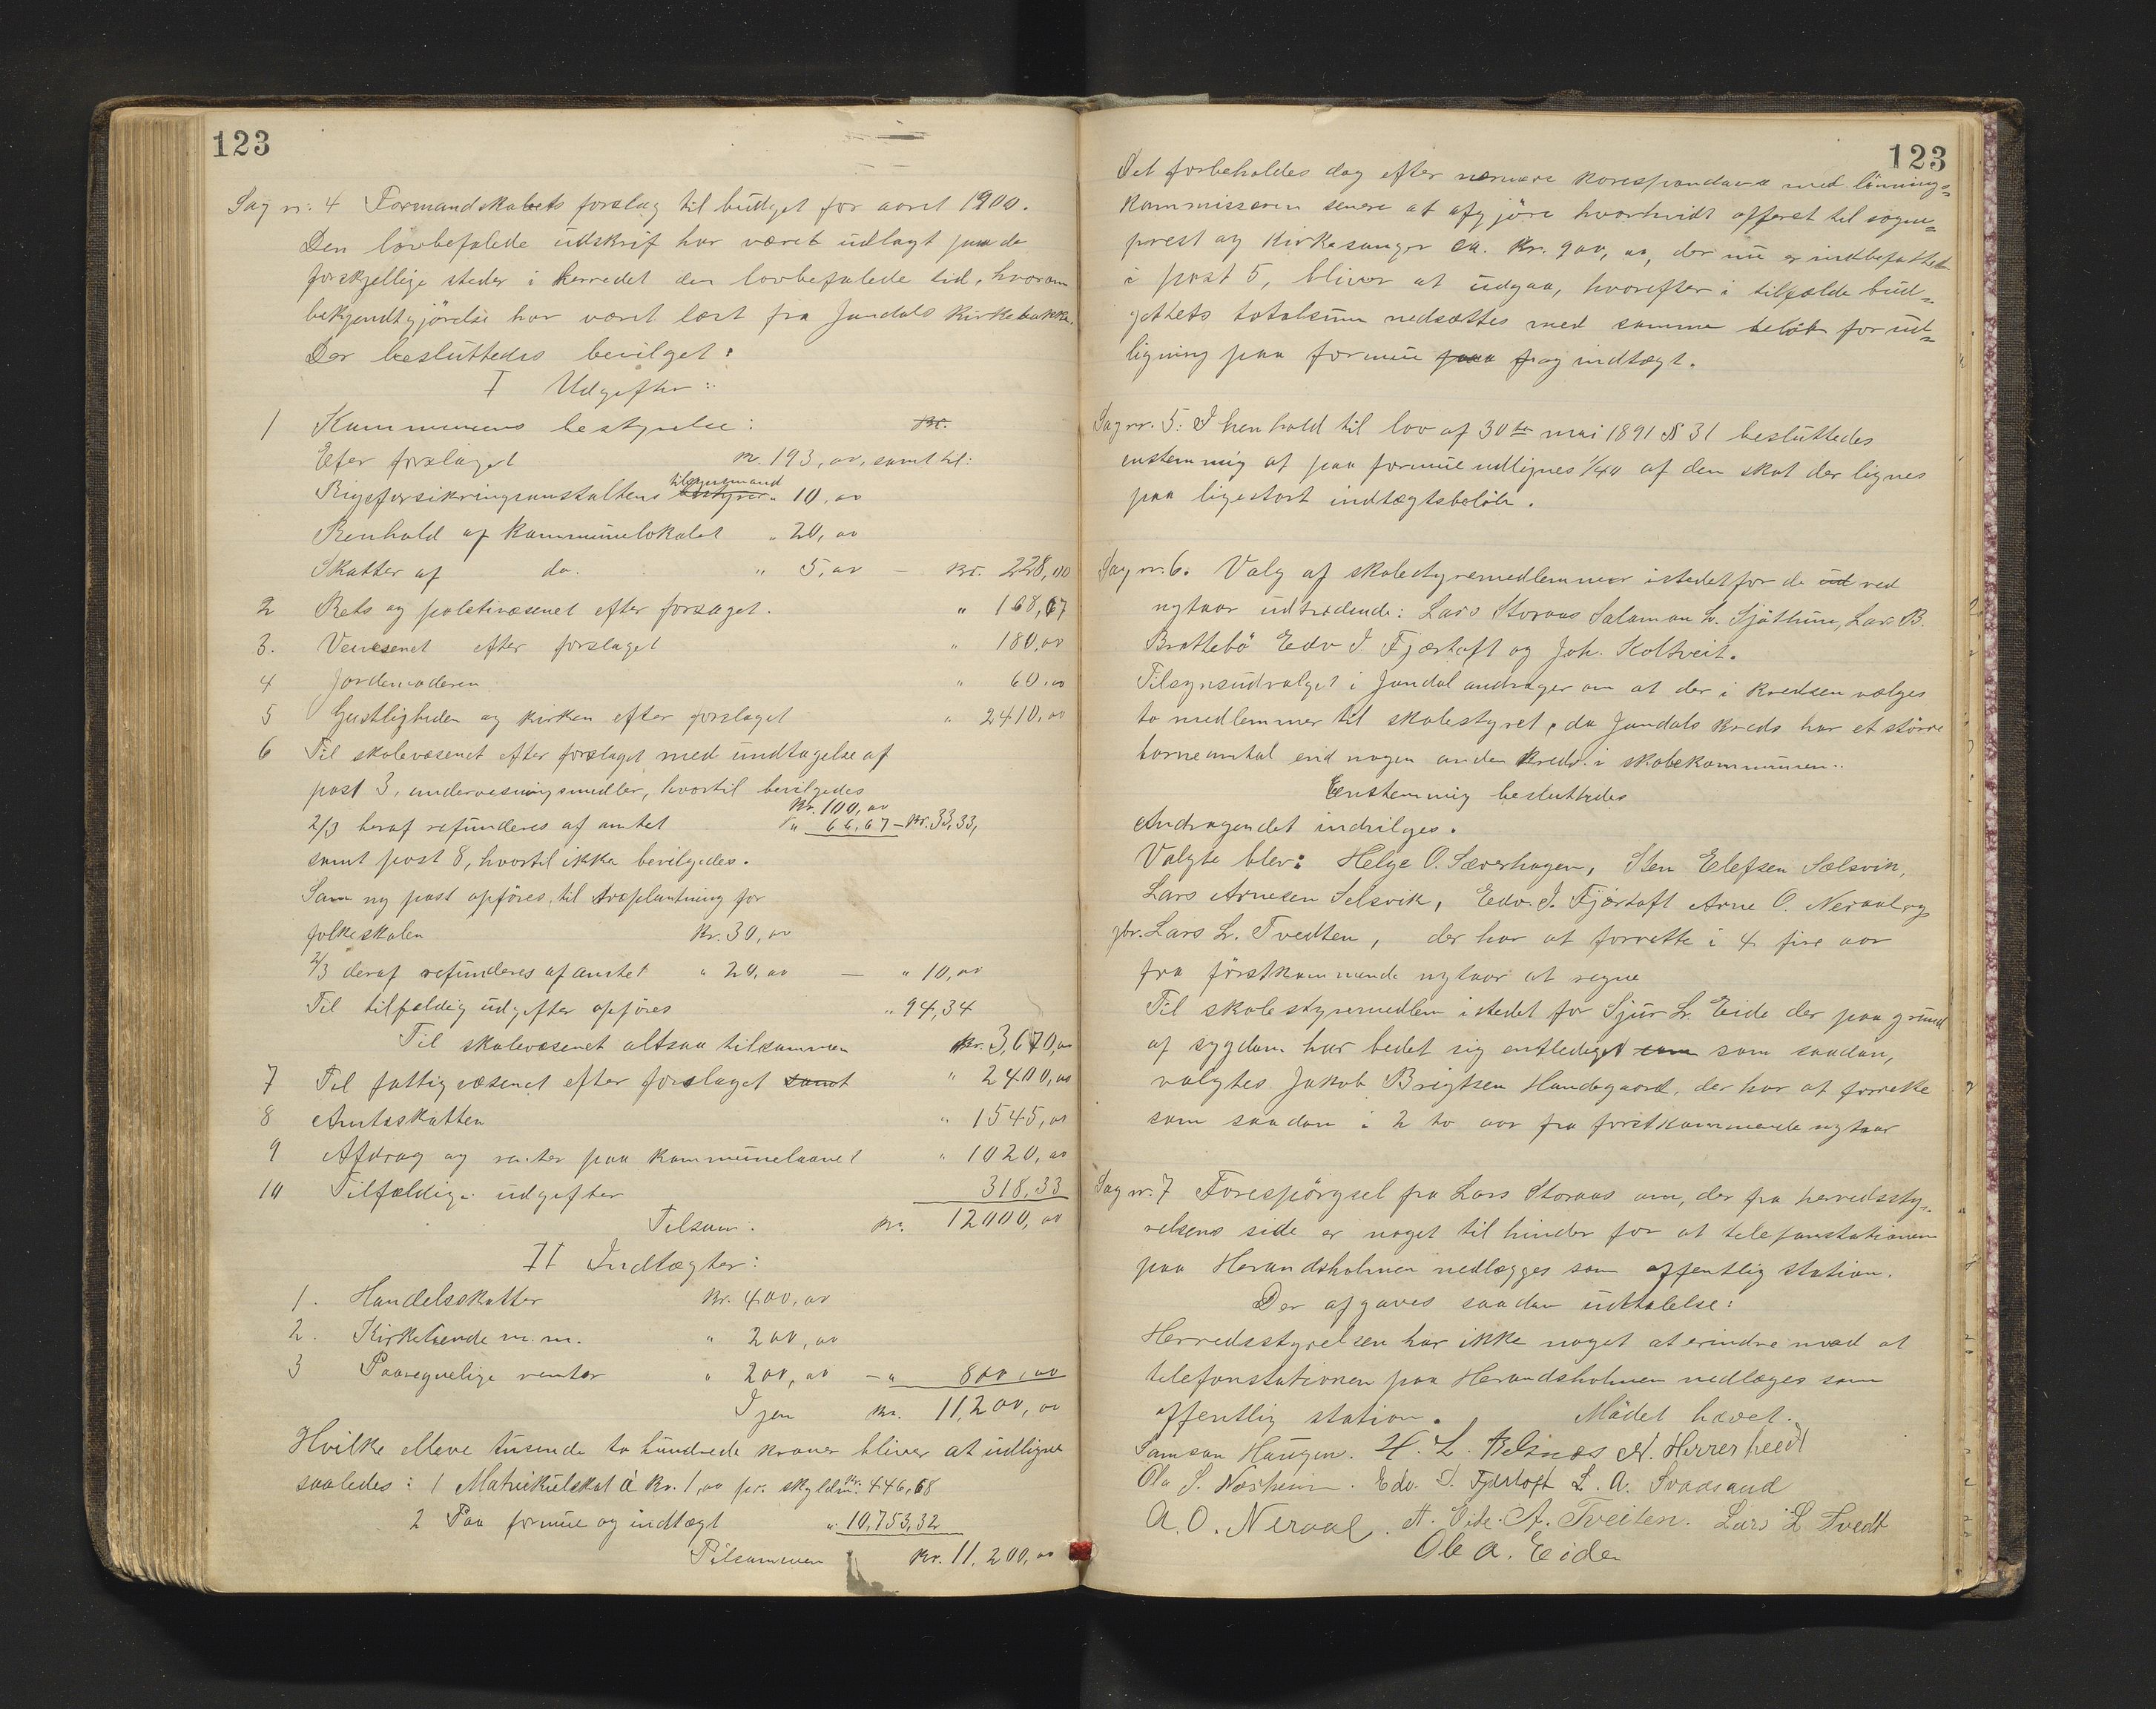 123
Sag nr. 4 Formandskabets forslag til budget for aaret 1900.
Den lovbefalede udskrif har været udlagt paa de
forskjellige steder i herredet den lovbefalede tid, hvorom
bekjendtgjörelse har været læst fra Jondals kirkebakke.
Der besluttedes bevilget:
I Udgifter:
1 Kommunens bestyrelse: Kr.
Efter forslaget Kr. 193,00, samt til:
tilsynsmand
Rigsforsikringsanstaltens bestyrer " 10,00
Renhold af kommunelokalet " 20,00
Skatter af do. " 5,00 – Kr. 228,00
2 Rets og politivæsenet efter forslaget. " 168,67
3. Veivæsenet efter forslaget " 180,00
4 Jordemoderen " 60,00
5 Geistligheden og kirken efter forslaget " 2410,00
6 Til skolevæsenet efter forslaget med undtagelse af
post 3, undervisningsmidler, hvortil bevilgedes
Kr. 100,00
2/3 heraf refunderes af amtet " 66,67 – Kr. 33,33,
samt post 8, hvortil ikke bevilgedes.
Som ny post opföres til træplantning for
folkeskolen Kr. 30,00
2/3 deraf refunderes af amtet " 20,00 — " 10,00
Til tilfældig udgifter opföres " 94,34
Til skolevæsenet altsaa tilsammen Kr. 3,670,00
7 Til fattigvæsenet efter forslaget samt " 2400,00
8 Amtsskatten " 1545,00
9 Afdrag og renter paa kommunelaanet " 1020,00
10 Tilfældige udgifter 318,33
Tilsam. Kr. 12000,00
II Indtægter:
1. Handelsskatter Kr. 400,00
2. Kirketiende m.m. " 200,00
3 Paaregnelige renter " 200,00 – " 800,00
Igjen Kr. 11,200,00
Hvilke elleve tusinde to hundrede kroner bliver at udligne
saaledes: 1 Matrikulskat à Kr. 1,00 pr. skyldm. Kr. 446,68
2 Paa formue og indtægt " 10,753,32
Tilsammen Kr. 11,200,00
123
Det forbeholdes dog efter nærmere korespondance med lönnings-
kommissionen senere at afgjöre hvorvidt offeret til sogne-
prest og kirkesanger ca. Kr. 900,00, der nu er indbefattet
i post 5, bliver at udgaa, hvorefter i tilfælde bud-
gettets totalsum nedsættes med samme belöb for ud-
ligning paa formue paa f og indtægt.
Sag nr. 5. I henhold til lov af 30te mai 1891 § 31 besluttedes
enstemmig at paa formue udlignes 1/40 af den skat der lignes
paa ligestort indtægtsbelöb.
Sag nr. 6. Valg af skolestyremedlemmer istedetfor de ud ved
nytaar udtrædende: Lars Storaas Salamon L. Sjöthun, Lars B.
Brattebö Edv I Fjærtoft og Joh. Koltveit.
Tilsynsudvalget i Jondal andrager om at der i kredsen vælges
to medlemmer til skolestyret, da Jondals kreds har et större
barneantal end nogen anden kreds i skolekommunen.
Enstemmig besluttedes
Andragendet indvilges.
Valgte blev: Helge O. Sæverhagen, Sten Elefsen Selsvik,
Lars Arnesen Selsvik, Edv. I. Fjærtoft Arne O. Neraal og
Lars L. Tvedten, der har at forrette i 4 fire aar
fra förstkommende nytaar at regne
Til skolestyremedlem istedet for Sjur L. Eide der paa grund
af sygdom har bedet sig entlediget som som saadan,
valgtes Jakob Brigtsen Handegaard, der har at forrette
som saadan i 2 to aar fra förstkommende nytaar
Sag nr. 7 Forespörgsel fra Lars Storaas om, der fra herredssty-
relsens side er noget til hinder for at telefonstationen
paa Herandsholmen nedlægges som offentlig station.
Der afgaves saadan udtalelse:
Herredsstyrelsen har ikke noget at erindre mod at
telefonstationen paa Herandsholmen nedlæges som
offentlig station. Mödet hævet.
Samson Haugen. H. L. Selsnæs N. Herrer
Ola S. Næsheim. Edv. I. Fjærtoft L. A. Svaasand
A. O. Neraal. A. Eide. A. Tveiten. Lars L Tvedt
Ole A. Eide